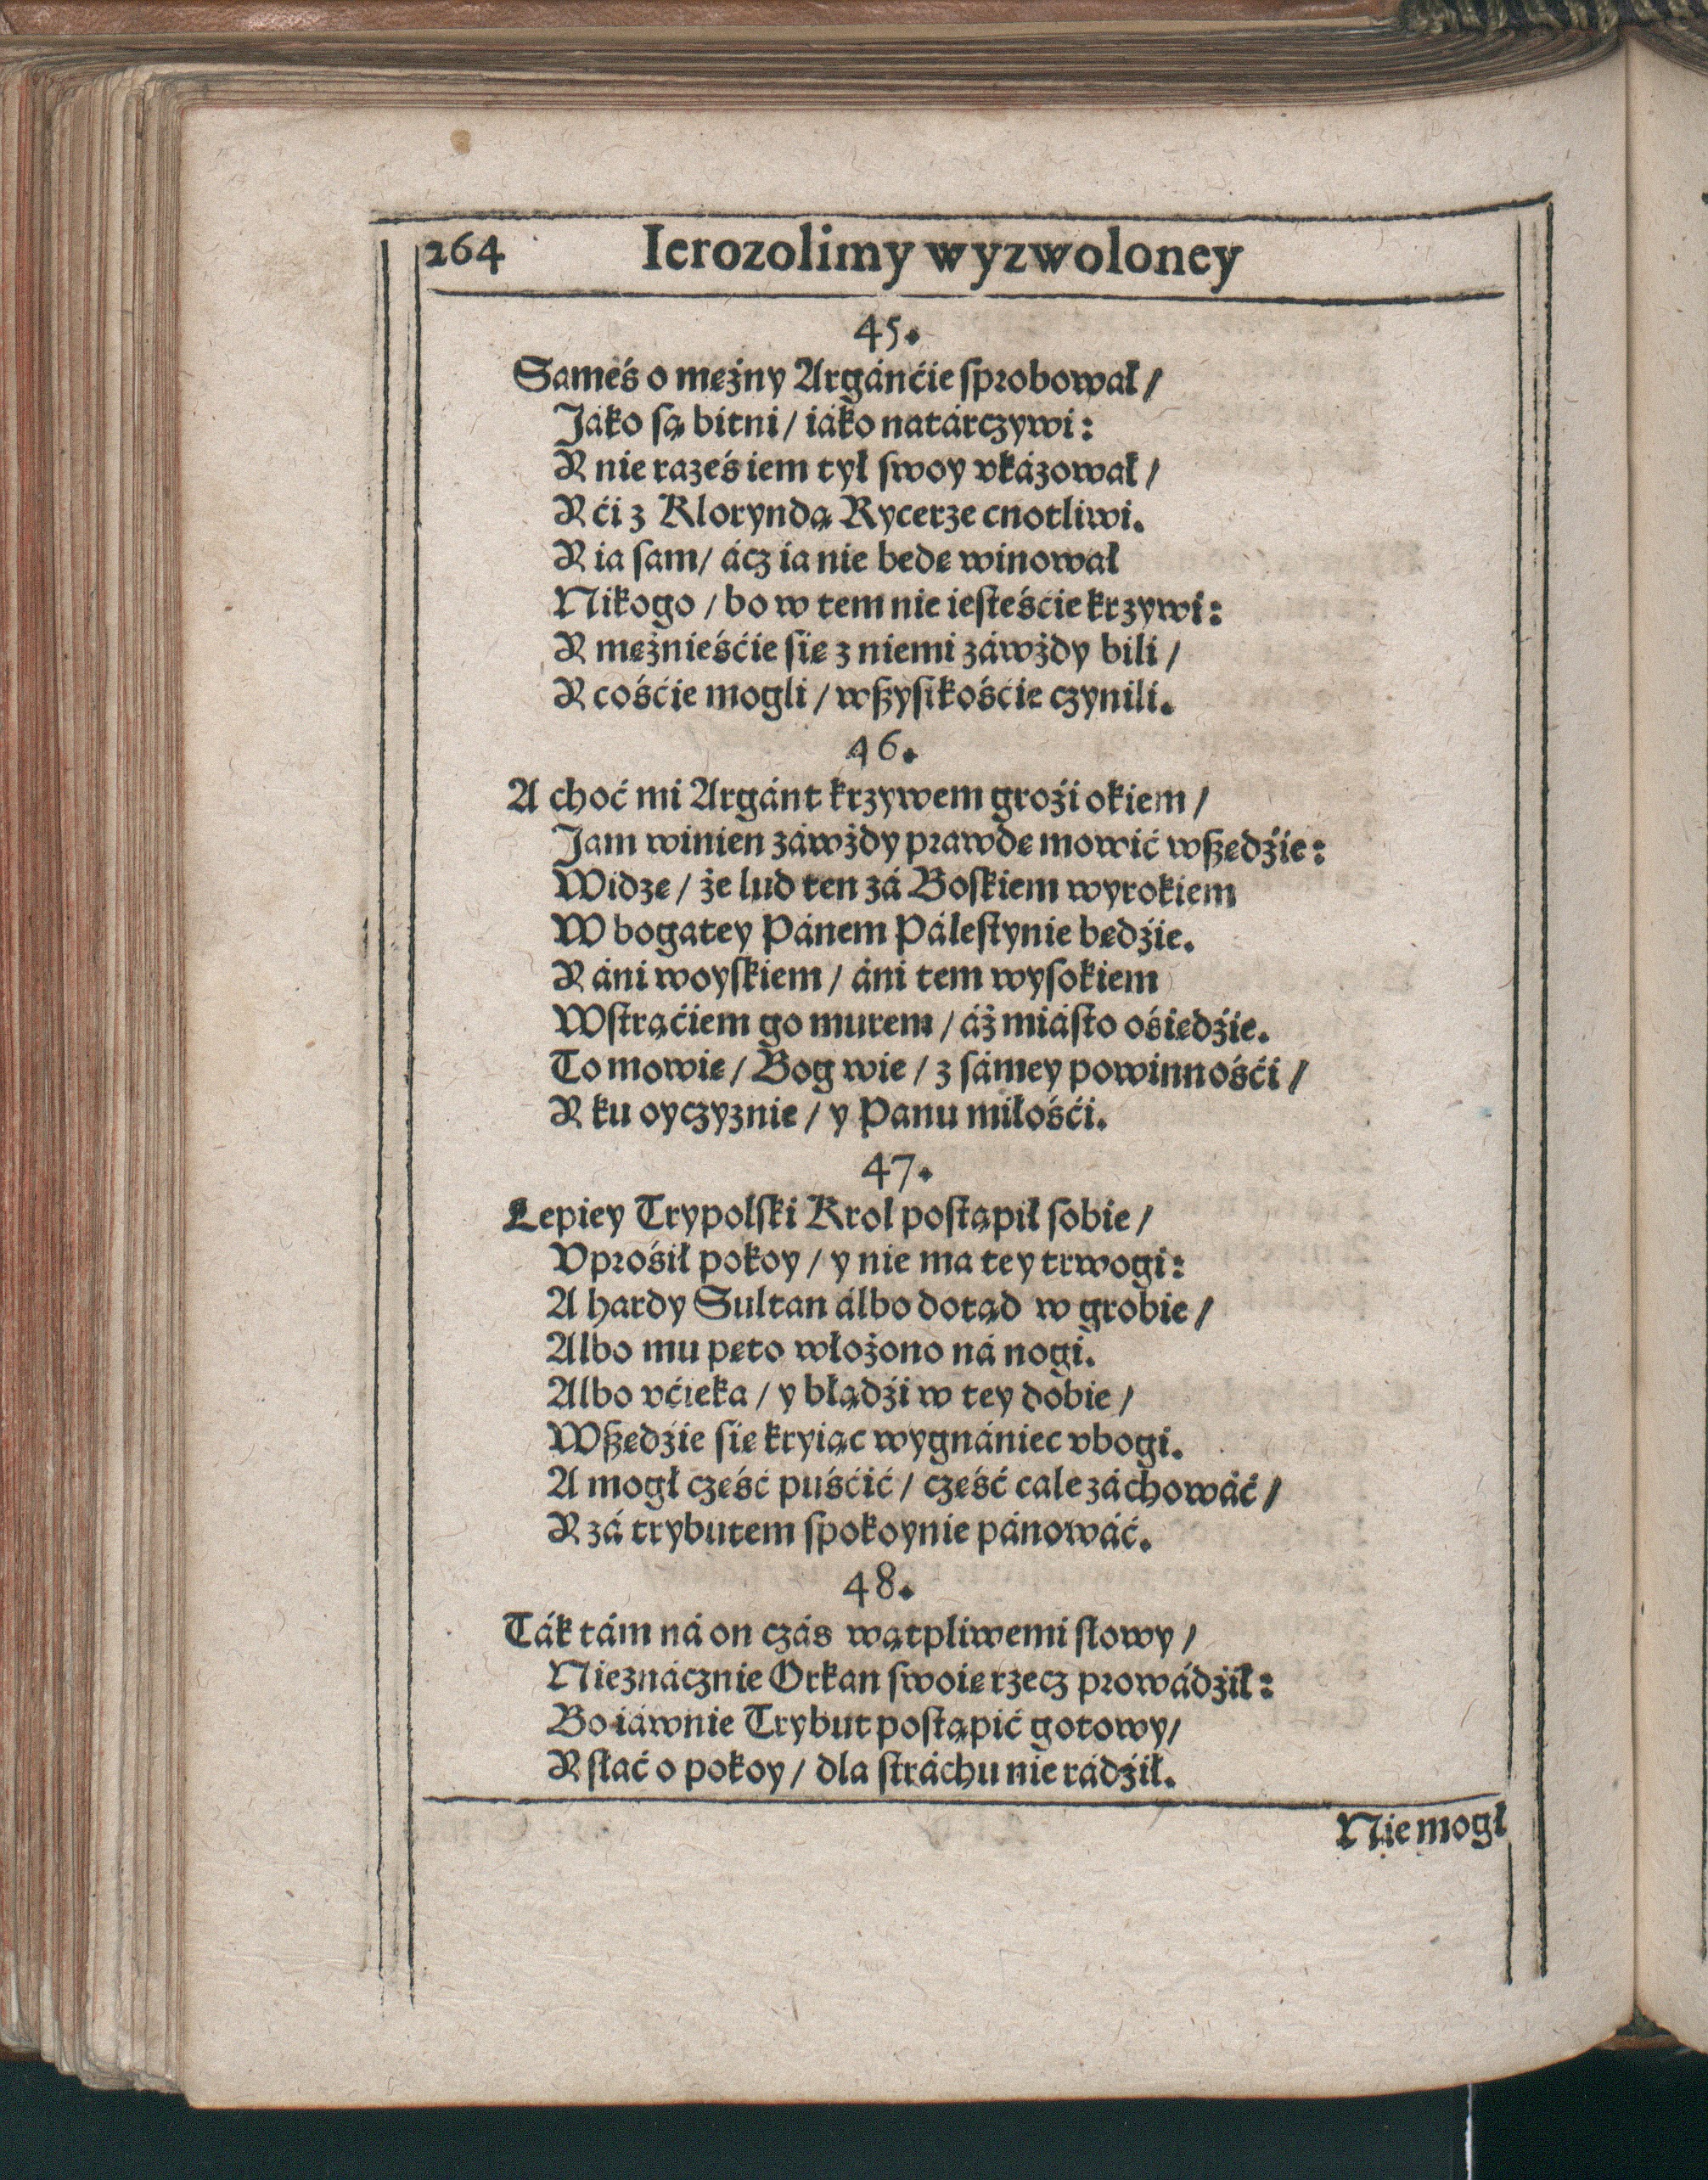 264 Ierozolimy wyzwoloney
45.
Sameś o mężny Argánćie sprobował /
Jáko są bitni / iáko natárczywi:
Y nie raześ iem tył swoy vkázował /
Y ći z Kloryndą Rycerze cnotliwi.
Y ia sam / ácz ia nie będę winował
Nikogo / bo w tem nie iesteśćie krzywi:
Y mężnieśćie się z niemi záwżdy bili /
Y cośćie mogli / wszysikośćie czynili.
46.
A choć mi Argánt krzywem groźi okiem /
Jam winien záwżdy prawdę mowić wszędźie:
Widzę / że lud ten zá Boskiem wyrokiem
W bogatey Pánem Pálestynie będźie.
Y áni woyskiem / áni tem wysokiem
Wstrąćiem go murem / áż miásto ośiędźie.
To mowię / Bog wie / z sámey powinnośći /
Y ku oyczyznie / y Panu miłośći.
47.
Lepiey Trypolski Krol postąpił sobie /
Vprośił pokoy / y nie ma tey trwogi:
A hardy Sultan álbo dotąd w grobie /
Albo mu pęto włożono ná nogi.
Albo vćieka / y błądźi w tey dobie /
Wszędźie się kryiąc wygnániec vbogi.
A mogł część puśćić / część cale záchowáć /
Y zá trybutem spokoynie pánowáć.
48.
Ták tám ná on czás wątpliwemi słowy /
Nieznácznie Orkan swoię rzecz prowádźił:
Bo iáwnie Trybut postąpić gotowy /
Y słać o pokoy / dla stráchu nie rádźił.
Nie mogł